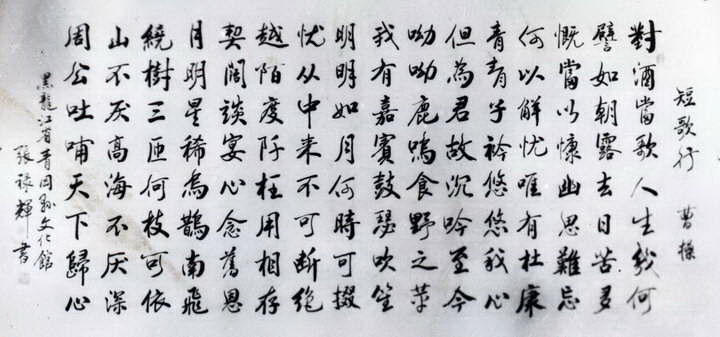 短歌行 曹操
對酒當歌人生幾何
譬如朝露去日苦多
慨當以慷幽思難忘
何以解忧唯有杜康
青青子衿悠悠我心
但為君故沉吟至今
呦呦鹿鳴食野之苹
我有嘉賓鼓瑟吹笙
明明如月何時可掇
忧从中来不可断绝
越陌度阡枉用相存
契阔談宴心念舊恩
月明星稀烏鵲南飛
繞樹三匝何枝可依
山不厌高海不厌深
周公吐哺天下歸心
黑龍江省青冈縣文化館
張祿輝書